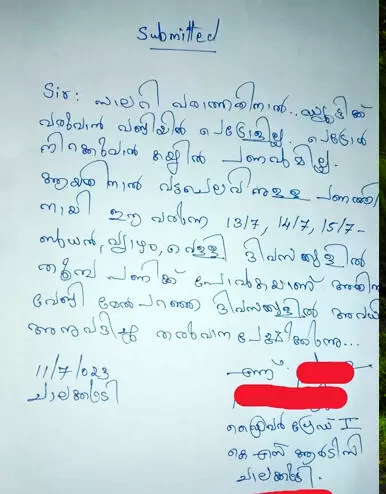 Submitted
Sir: സാലറി വരാത്തതിനാൽ.. ഡ്യൂട്ടിക്ക്
വരുവാൻ വണ്ടിയിൽ പെട്രോളില്ല. പെട്രോൾ
നിറക്കുവാൻ കയ്യിൽ പണവുമില്ല.
ആയതിനാൽ വട്ടചെലവിനുള്ള പണത്തി
നായി ഈ വരുന്ന 13/7, 14/7, 15/7-
ബുധൻ, വ്യാഴം, വെള്ളി ദിവസങ്ങളിൽ
പണിക്ക് പോവുകയാണ് അതിനു
വേണ്ടി മേൽപറഞ്ഞ ദിവസങ്ങളിൽ അവധി
അനുവദിച്ചു തരുവാനപേക്ഷിക്കുന്നു...
11/7/023
ചാലക്കുടി
എന്ന്
ഡ്രൈവർ ഗ്രേഡ് II
കെ എസ് ആർടിസി
ചാലക്കുടി.